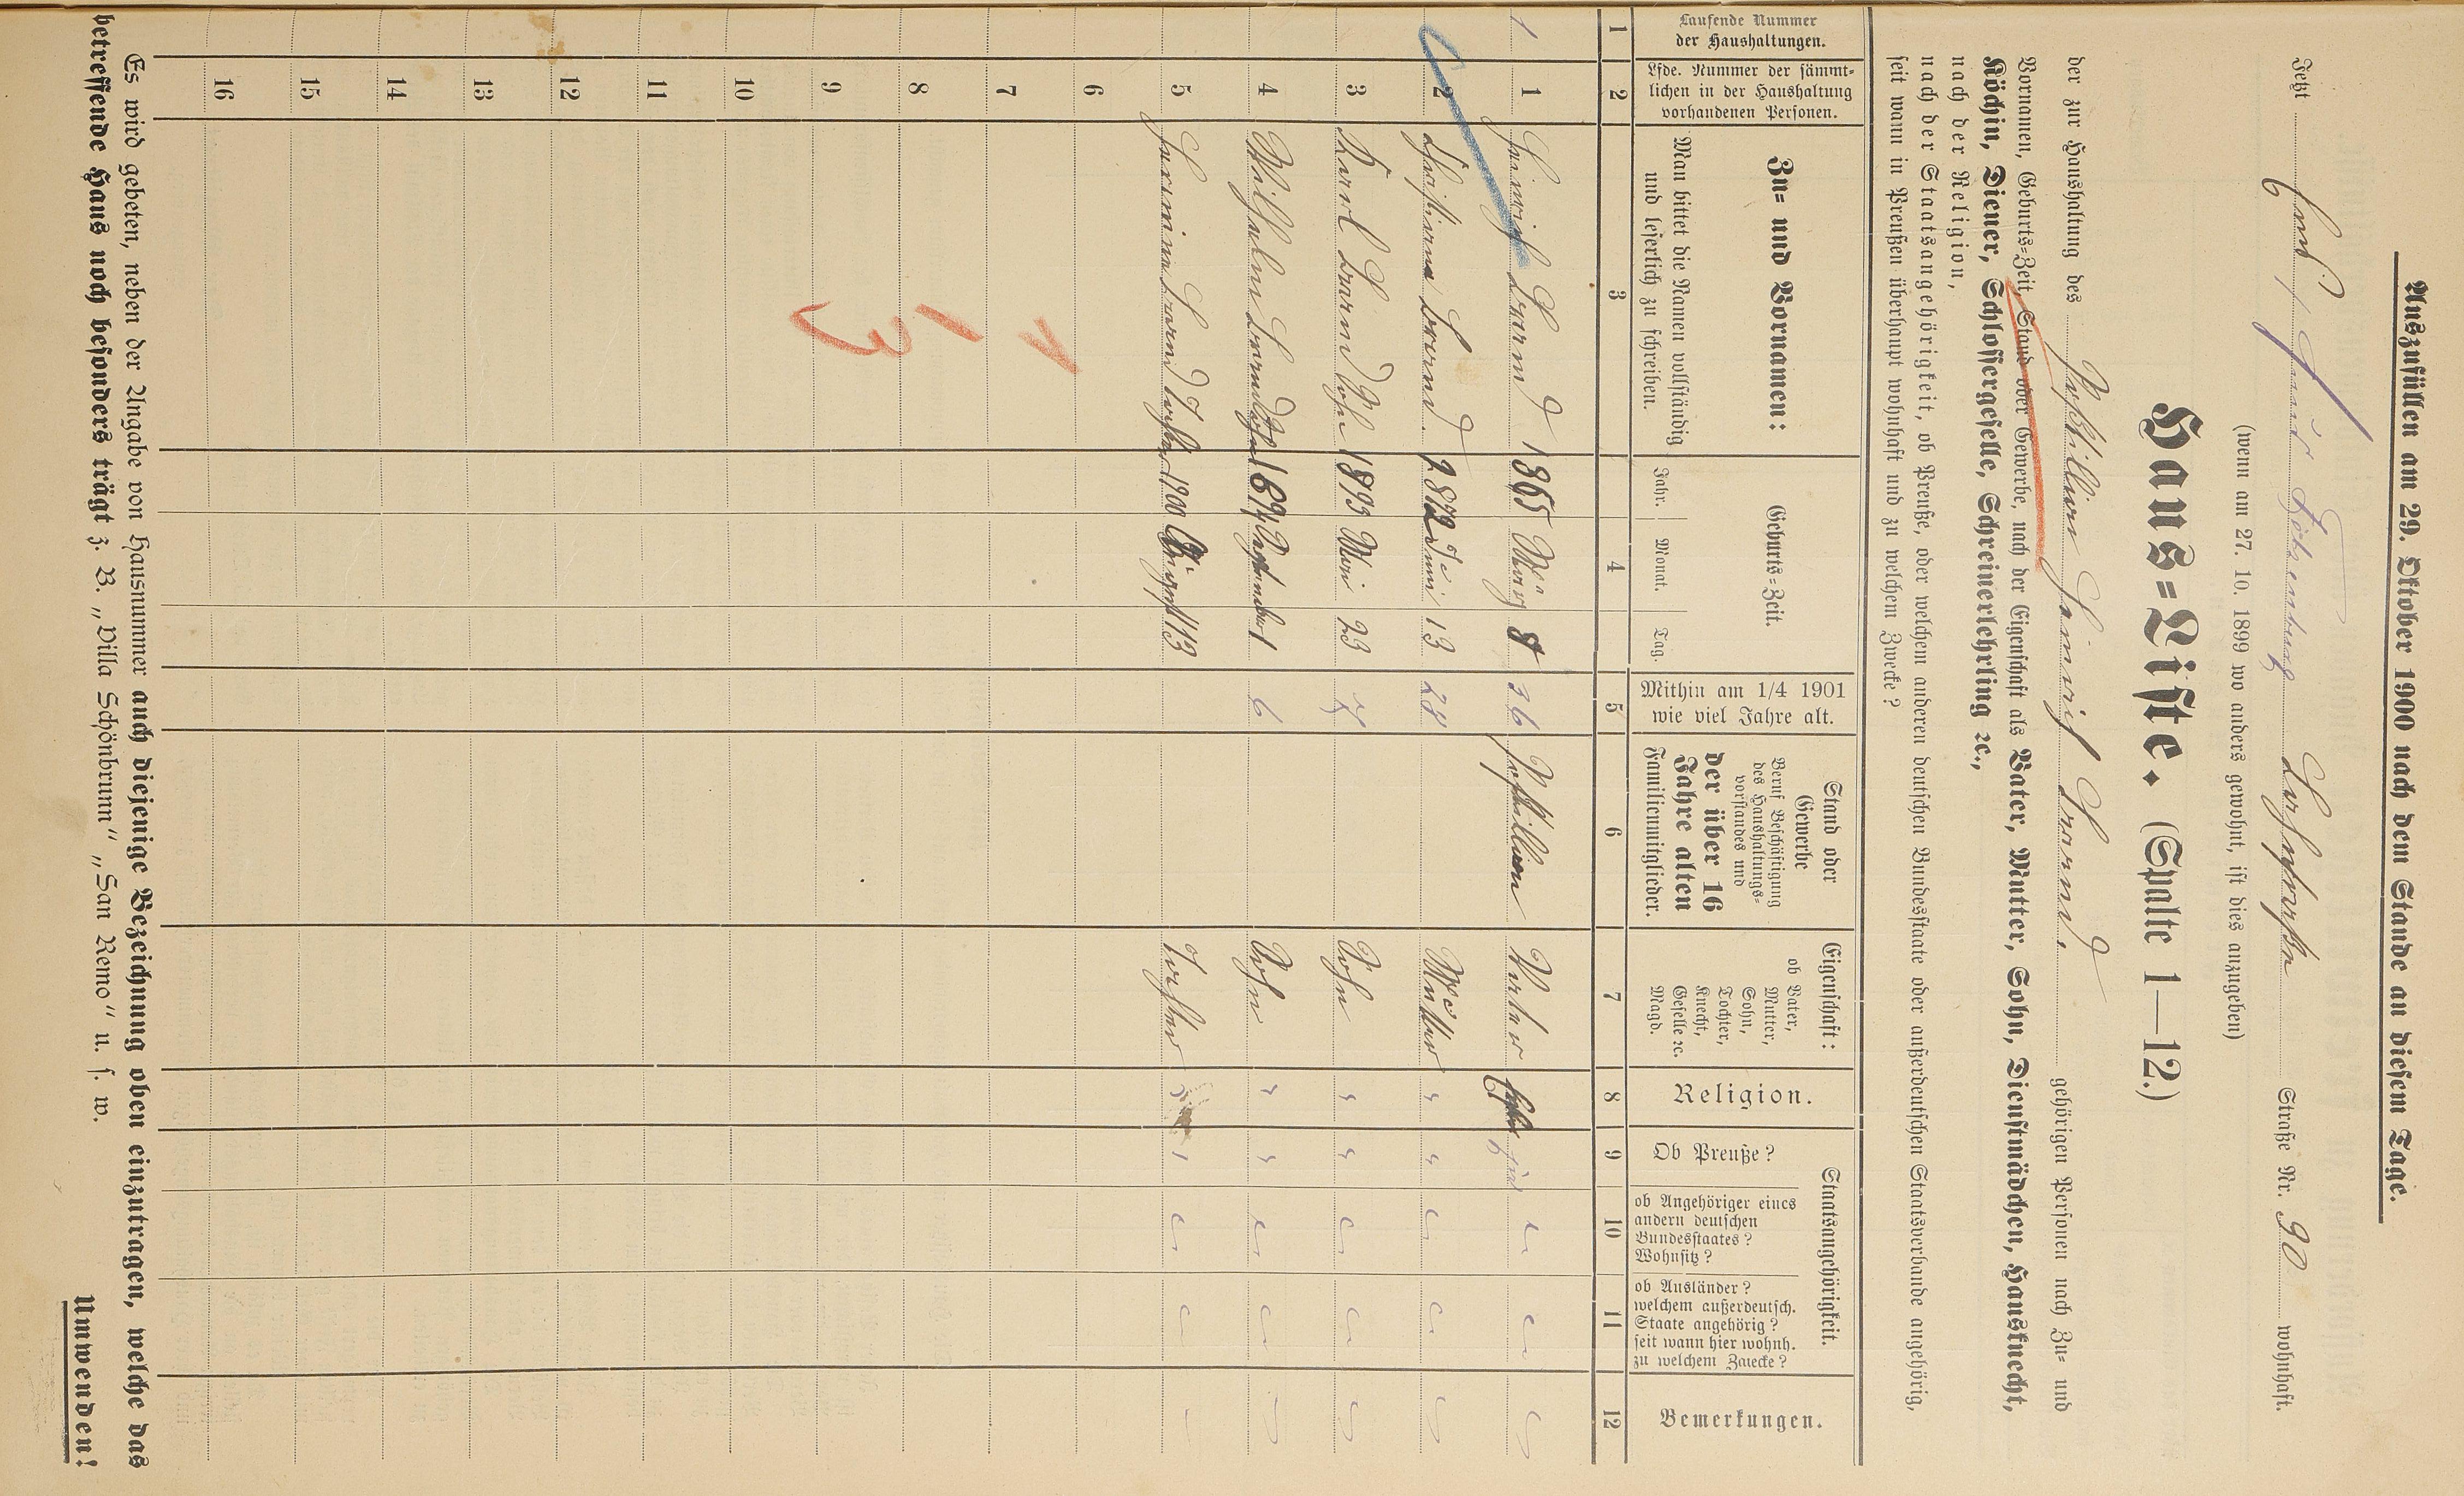 Auszufüllen am 29. Oktober 1900 nach dem Stande an diesem Tage.
Jetzt Ems, Lahnstraße Straße Nr. 90 wohnhaft.
(wenn am 27. 10. 1899 wo anders gewohnt, ist dies anzugeben)
Haus=Liste. (Spalte 1—12.)
der zur Haushaltung des Postillion Heinrich gehörigen Personen nach Zu= und
Vornamen, Geburts=Zeit, Stand oder Gewerbe, nach der Eigenschaft als Vater, Mutter, Sohn, Dienstmädchen, Hausknecht,
Köchin, Diener, Schlossergeselle, Schreinerlehrling ꝛc.,
nach der Religion,
nach der Staatsangehörigkeit, ob Preuße, oder welchem anderen deutschen Bundesstaate oder außerdeutschen Staatsverbande angehörig,
seit wann in Preußen überhaupt wohnhaft und zu welchem Zwecke?
Laufende Nummer
der Haushaltungen.
Lfde. Nummer der sämmt=
lichen in der Haushaltung
vorhandenen Personen.
Zu= und Vornamen:
Man bittet die Namen vollständig
und leserlich zu schreiben.
Geburts=Zeit.
Jahr. Monat. Tag.
Mithin am 1/4 1901
wie viel Jahre alt.
Stand oder
Gewerbe
Beruf Beschäftigung
des Haushaltungs=
vorstandes und
der über 16
Jahre alten
Familienmitglieder.
Eigenschaft:
ob Vater,
Mutter,
Sohn,
Tochter,
Knecht,
Geselle ꝛc.
Magd.
Religion.
Staatsangehörigkeit.
Ob Preuße?
ob Angehöriger eines
andern deutschen
Bundesstaates?
Wohnsitz?
ob Ausländer?
welchem außerdeutsch.
Staate angehörig?
seit wann hier wohnh.
zu welchem Zwecke?
Bemerkungen.
1 2 3 4 5 6 7 8 9 10 11 12
1 1 Heinrich 1865 März 8 36 Postillion Vater
2 1872 Juni 13 28 Mutter "  "
3 Karl Sohn 1893 Mai 23 7 Sohn " "
4 Wilhelm Sohn 1894 September 1 6 Sohn " "
5 Tochter 1900 August 13 Tochter " "
6
7
8
9
10
11
12
13
14
15
16
Es wird gebeten, neben der Angabe von Hausnummer auch diejenige Bezeichnung oben einzutragen, welche das
betreffende Haus noch besonders trägt z. B. „Villa Schönbrunn“ „San Remo“ u. s. w.
Umwenden!